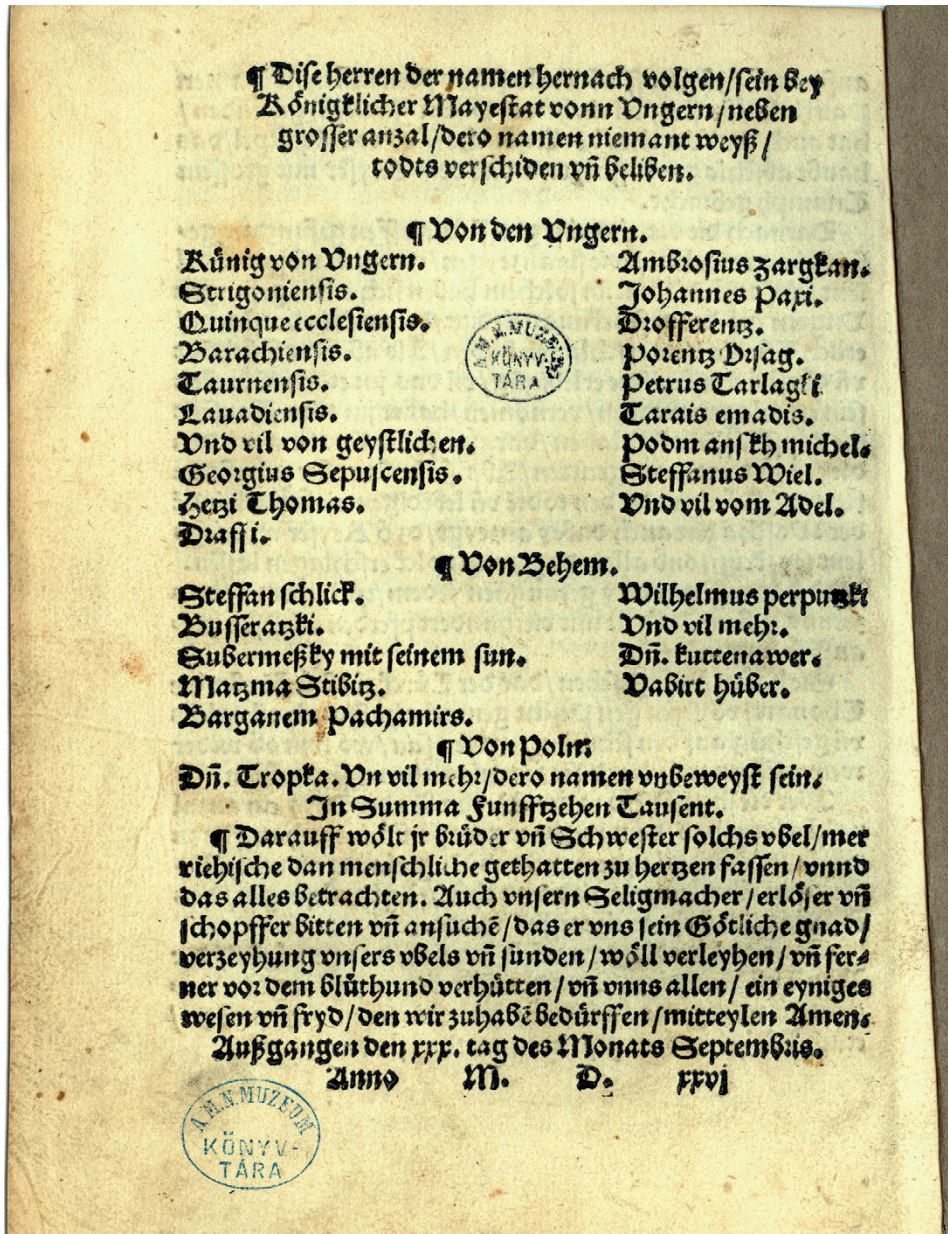 ¶ Dise herren der namen hernach volgen/sein bey
Königklicher Mayestat vonn Vngern/neben
grosser anzal/dero namen niemant weyß/
todts verschiden vñ beliben.
¶ Von den Vngern.
Künig von Vngern.
Strigoniensis.
Quinque ecclesiensis.
Barachiensis.
Taurnensis.
Lavadiensis.
Vnd vil von geystlichen.
Georgius Sepuscensis.
Hetzi Thomas.
Draffi.
Ambrosius zargkan.
Johannes Paxi.
Drofferentz.
Porentz Orsag.
Petrus Tarlagki
Tarais emadis.
Podmanskh michel.
Steffanus Wiel.
Vnd vil vom Adel.
¶ Von Behem.
Steffan schlick.
Busseratzki.
Subermeßky mit seinem sun.
Matzma Stibitz.
Barganem Pachamirs.
Wilhelmus perputzki
Vnd vil mehr.
Dñ. kuttenawer.
Vabirt hüber.
¶ Von Poln
Dñ. Tropka. Vn vil mehr/dero namen vnbeweyst sein.
In Summa Funfftzehen Tausent.
¶ Darauff wölt jr brüder vñ Schwester solchs vbel/mer
viehische dan menschliche gethatten zu hertzen fassen/vnnd
das alles betrachten. Auch vnsern Seligmacher/erlöser vñ
schopffer bitten vñ ansuchē/das er vns sein Götliche gnad/
verzeyhung vnsers vbels vñ sunden/wöll verleyhen/vñ fer-
ner vor dem blůthund verhütten/vñ vnns allen/ein eyniges
wesen vñ fryd/den wir zuhabē bedürffen/mitteylen Amen.
Außgangen den xxx. tag des Monats Septembris.
Anno M. D. xxvj
A.M.N. MUZEUM
KÖNYV-
TÁRA
A.M.N. MUZEUM
KÖNYV-
TÁRA